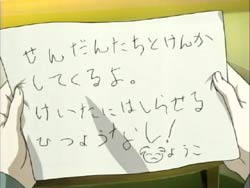 せんだんたちとけんか
してくるよ。
けいたにはしらせる
ひつようなし!
ようこ